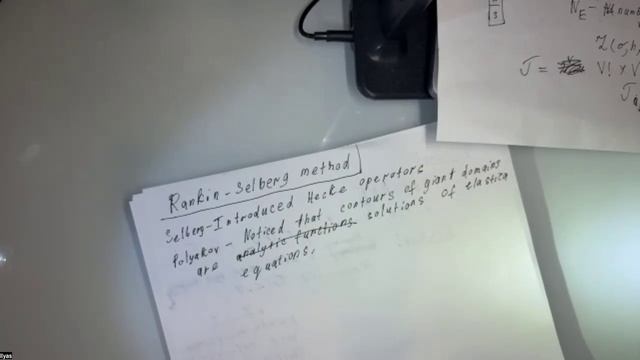 N_E - num
Z(σ, h,
J = V! × V
J
Rankin-Selberg method
Selberg-Introduced Hecke operators
Polyakov - Noticed that contours of giant domains
are analytic functions solutions of elastica
equations.
Ilyas